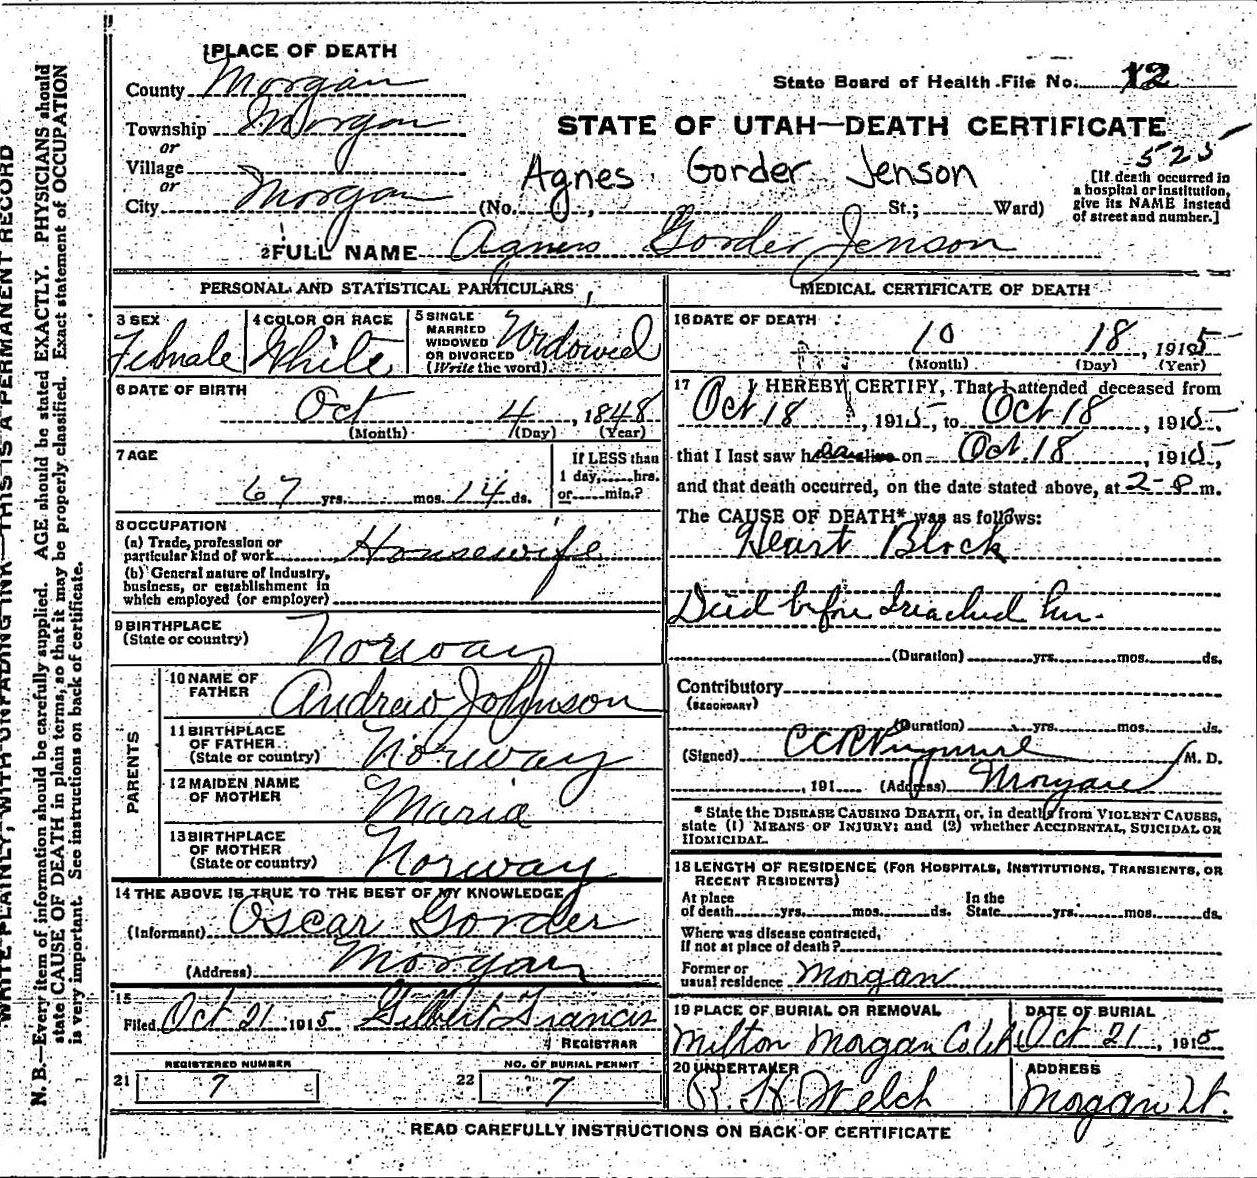 WRITE PLAINLY, WITH UNFADING INK—THIS IS A PERMANENT RECORD
N. B.—Every item of information should be carefully supplied. AGE should be stated EXACTLY. PHYSICIANS should
state CAUSE OF DEATH in plain terms, so that it may be properly classified. Exact statement of OCCUPATION
is very important. See instructions on back of certificate.
1 PLACE OF DEATH
County Morgan
Township Morgan
or
Village
or
City Morgan
State Board of Health File No. 12
STATE OF UTAH—DEATH CERTIFICATE
525
Agnes Gorder Jenson
(No. , St.; Ward)
[If death occurred in
a hospital or institution,
give its NAME instead
of street and number.]
2 FULL NAME Agness Gorder Jenson
PERSONAL AND STATISTICAL PARTICULARS
3 SEX
Female
4 COLOR OR RACE
White
5 SINGLE
MARRIED
WIDOWED
OR DIVORCED
(Write the word)
Widowed
6 DATE OF BIRTH
Oct 4, 1848
(Month) (Day) (Year)
7 AGE
67 yrs. mos. 14 ds.
If LESS than
1 day, hrs.
or min.?
8 OCCUPATION
(a) Trade, profession or
particular kind of work Housewife
(b) General nature of industry,
business, or establishment in
which employed (or employer)
9 BIRTHPLACE
(State or country) Norway
PARENTS
10 NAME OF
FATHER Andrew Johnson
11 BIRTHPLACE
OF FATHER
(State or country) Norway
12 MAIDEN NAME
OF MOTHER Maria
13 BIRTHPLACE
OF MOTHER
(State or country) Norway
14 THE ABOVE IS TRUE TO THE BEST OF MY KNOWLEDGE
(Informant) Oscar Gorder
(Address) Morgan
15
Filed Oct 21 1915 Gilbert Francis
REGISTRAR
21 REGISTERED NUMBER
7
22 NO. OF BURIAL PERMIT
7
MEDICAL CERTIFICATE OF DEATH
16 DATE OF DEATH
10 18, 1915
(Month) (Day) (Year)
17 I HEREBY CERTIFY, That I attended deceased from
Oct 18, 1915, to Oct 18, 1915,
that I last saw h alive on Oct. 18, 1915,
and that death occurred, on the date stated above, at 2-P m.
The CAUSE OF DEATH* was as follows:
Heart Block
Died before I reached her.
(Duration) yrs. mos. ds.
Contributory
(SECONDARY)
(Duration) yrs. mos. ds.
(Signed) M. D.
, 191 (Address) Morgan
* State the DISEASE CAUSING DEATH, or, in deaths from VIOLENT CAUSES,
state (1) MEANS OF INJURY; and (2) whether ACCIDENTAL, SUICIDAL OR
HOMICIDAL.
18 LENGTH OF RESIDENCE (FOR HOSPITALS, INSTITUTIONS, TRANSIENTS, OR
RECENT RESIDENTS)
At place
of death yrs. mos. ds.
In the
State yrs. mos. ds.
Where was disease contracted,
if not at place of death?
Former or
usual residence Morgan
19 PLACE OF BURIAL OR REMOVAL
Milton Morgan Co
DATE OF BURIAL
Oct 21, 1915
20 UNDERTAKER
R. H. Welch
ADDRESS
Morgan Ut.
READ CAREFULLY INSTRUCTIONS ON BACK OF CERTIFICATE